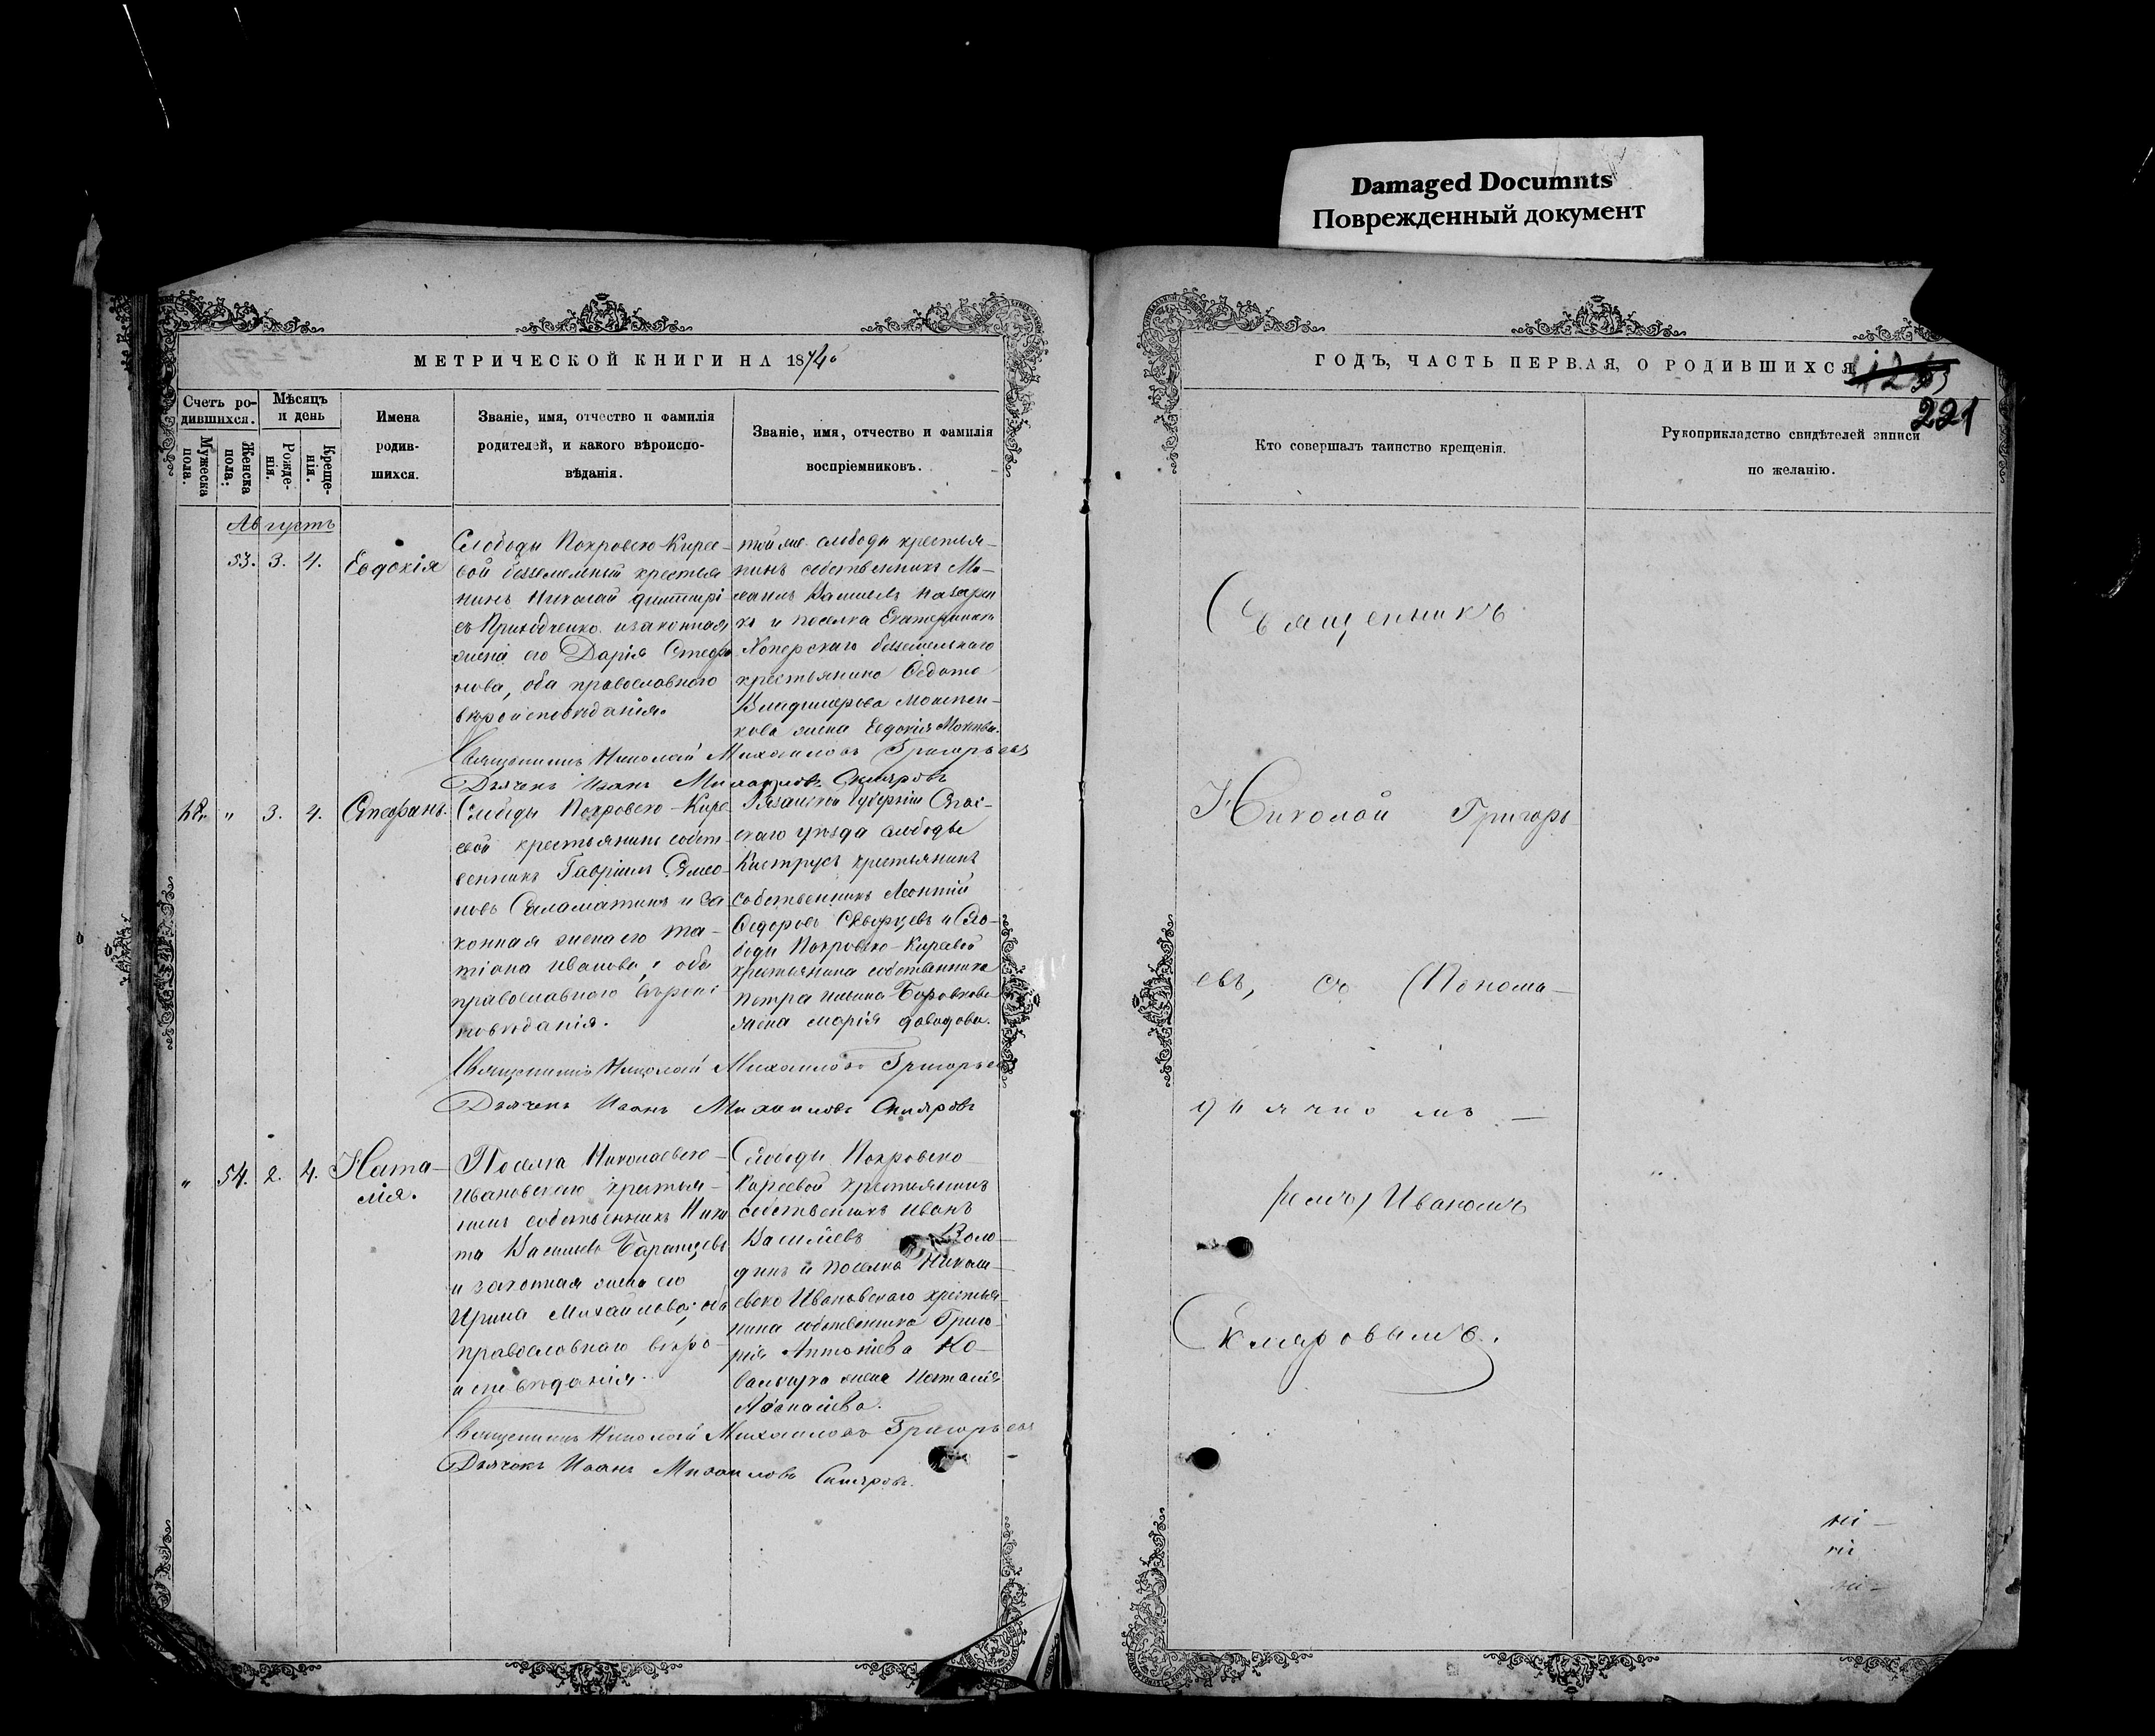 Damaged Documnts
Поврежденный документ
МЕТРИЧЕСКОЙ КНИГИ НА 1874й
Счетъ ро-
дившихся.
Мужеска
пола.
Женска
пола:
Мѣсяцъ
и день
Рожде-
нія.
Креще-
нія.
Имена
родив-
шихся.
Званіе, имя, отчество и фамилія
родителей, и какого вѣроиспо-
вѣданія.
Званіе, имя, отчество и фамилія
воспріемниковъ.
Августъ
53. 3. 4. Евдокія
Слободы Покровско-Кирее-
вой безземельный крестья
нинъ Николай Димитрі
евъ Приходченко и законная
жена его Дарія Стефа
нова, оба православнаго
вѣроисповѣданія.
той же слободы крестья-
нинъ собственникъ Ми-
хаилъ
ко и поселка
Хоперскаго безземельнаго
крестьянина Ѳедота
Владимірова
кова жена Евдокія
Священникъ Николай Михаиловъ Григорьевъ
Дьячекъ Иванъ Михаиловъ Скляровъ
" 3. 4. Стефанъ.
Слободы Покровско-Кире-
евой крестьянинъ собст-
венникъ Гавріилъ Симео-
новъ Саламатинъ и за
конная жена его Та-
тіана Иванова, оба
православнаго вѣроис-
повѣданія.
Рязанской губерніи Спас-
скаго уѣзда слободы
Киструсъ крестьянинъ
собственникъ Леонтій
Ѳедоровъ Скворцевъ и Сло-
боды Покровско-Киреевой
крестьянина собственника
Петра Ильина Боровкова
жена Марія Давидова.
Священникъ Николай Михаиловъ Григорьевъ
Дьячекъ Иванъ Михаиловъ Скляровъ
" 54. 2. 4. Ната-
лія.
Поселка Николаевско-
Ивановскаго крестья-
нинъ собственникъ Ники
та Васильевъ Баранцевъ
и законная жена его
Ирина Михайлова, оба
православнаго вѣро-
исповѣданія.
Слободы Покровско
Киреевой крестьянинъ
собственникъ Иванъ
Васильевъ Воло-
динъ и поселка Никола-
евско Ивановскаго крестья-
нина собственника Григо-
рія Антоніева Ко-
вальчука жена Наталія
Аѳанасіева.
Священникъ Николай Михаиловъ Григорьевъ
Дьячекъ Иванъ Михаиловъ Скляровъ.
ГОДЪ, ЧАСТЬ ПЕРВАЯ, О РОДИВШИХСЯ
221
Кто совершалъ таинство крещенія.
Рукоприкладство свидѣтелей записи
по желанію.
Священникъ
Николай Григорь
евъ, съ Понома-
ремъ Иваномъ
Скляровымъ.